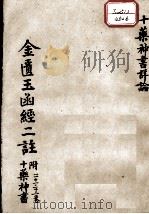 十藥神書評論
金匱玉函經二註
附
十藥神書